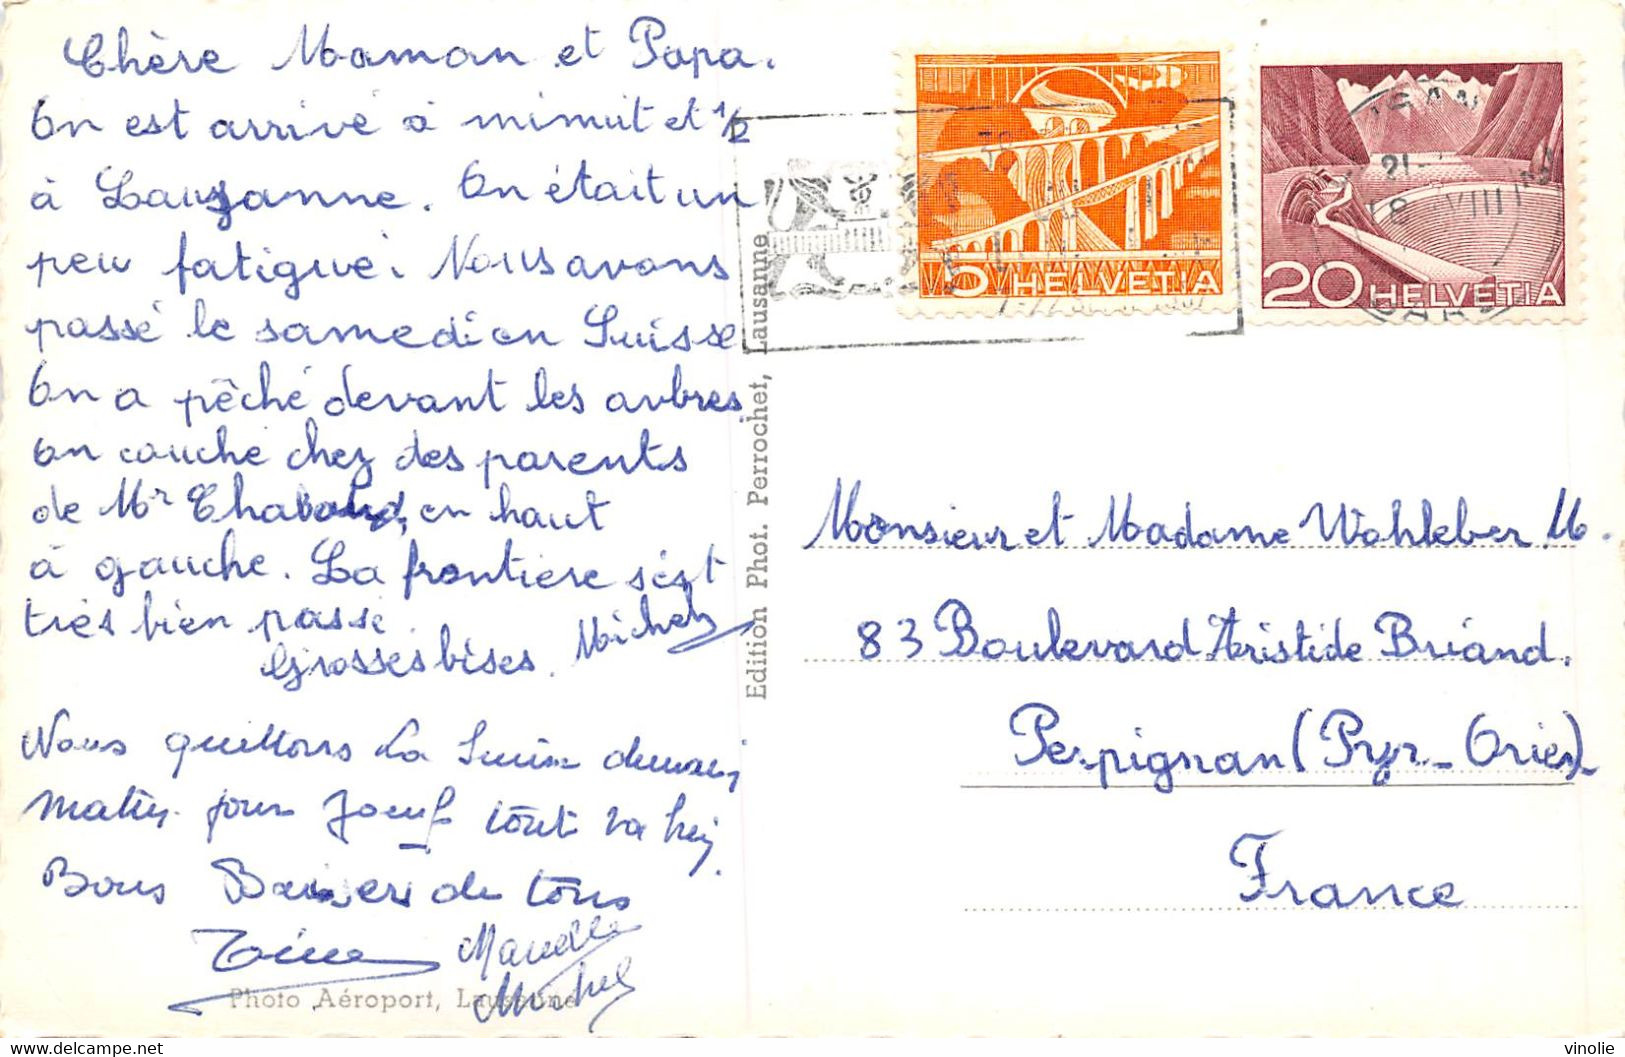 Chère Maman et Papa.
On est arrivé à minuit et 1/2
à Lausanne. On était un
peu fatigué. Nous avons
passé le samedi en Suisse
On a pêché devant les arbres
on couche chez des parents
de Mr Chabaud, en haut
à gauche. La frontière s'est
très bien passé.
Grosses bises. Michel
Nous quittons la Suisse demain
matin pour Joeuf tout va bien
Bons Baisers de tous
Marcelle
Michel
Photo Aéroport, Lausanne
Edition Phot. Perrochet, Lausanne
5 HELVETIA
20 HELVETIA
21-
18 VIII
Monsieur et Madame Wohleber M.
83 Boulevard Aristide Briand.
Perpignan (Pyr-Orien)
France
vinolie